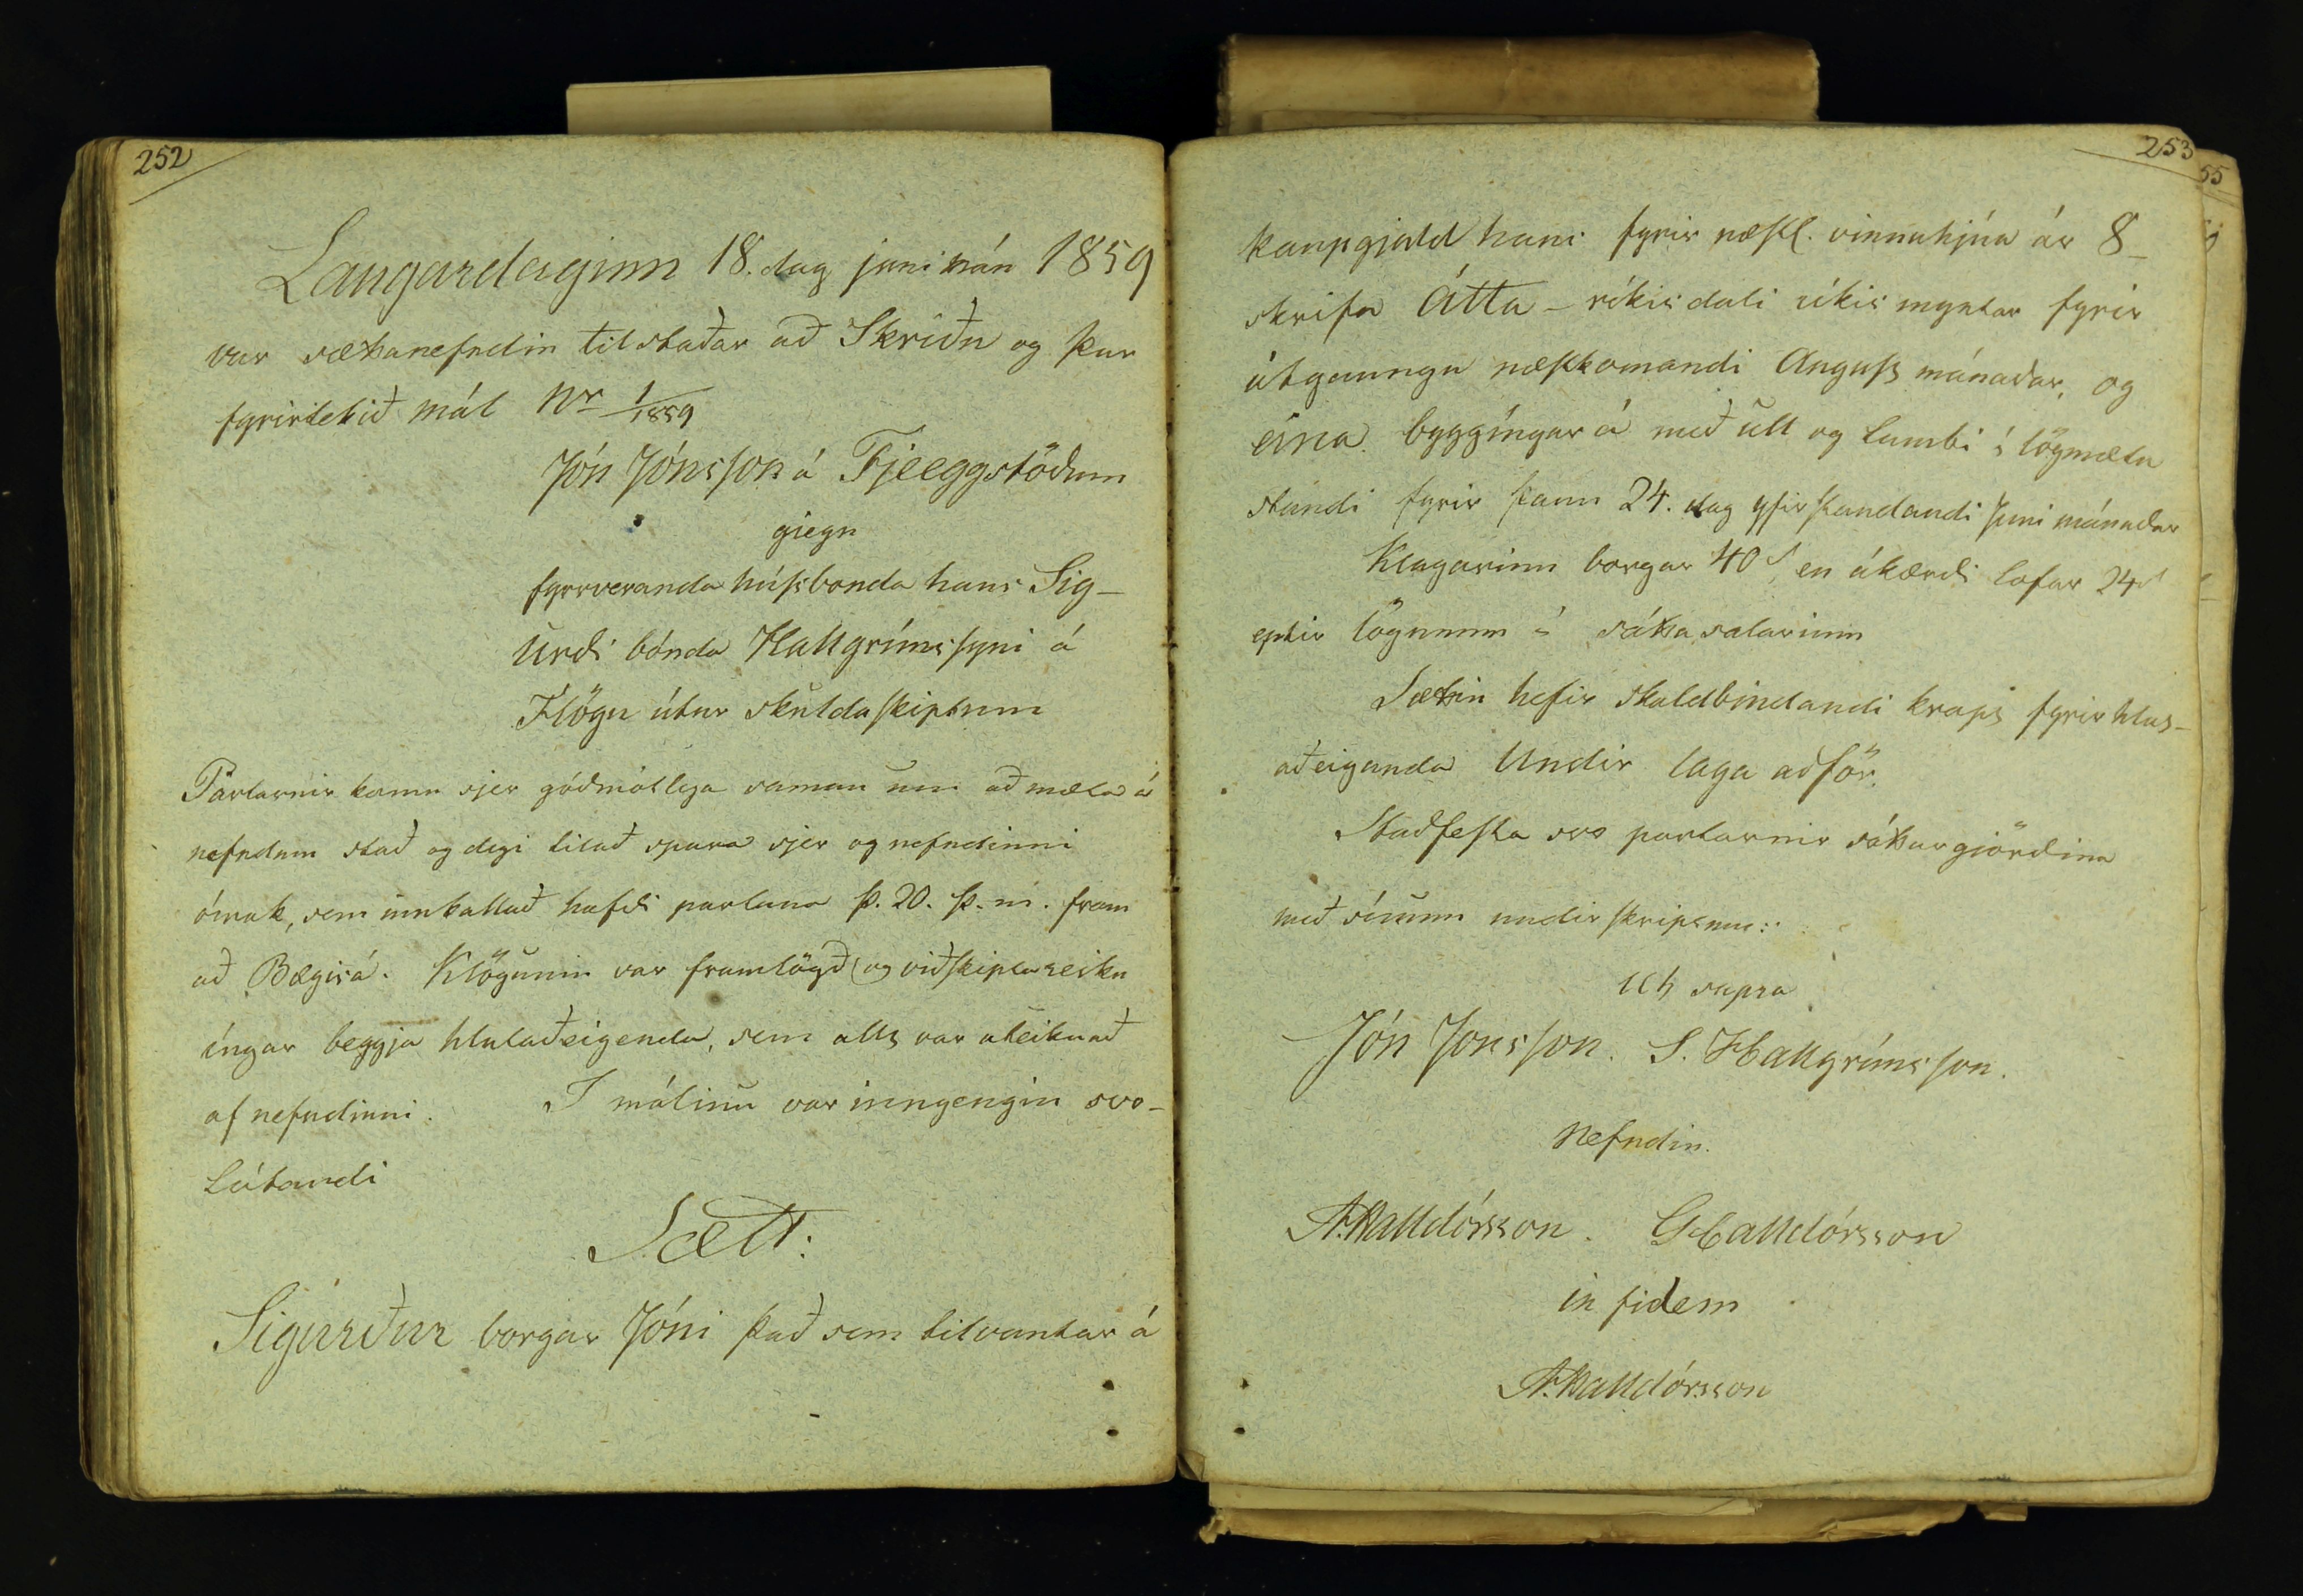 252
Laugardaginn 18. dag juni mán 1859
var sættanefndin til staðar að Skriðu og þar
fyrirtekið mál Nr 1/1859
Jón Jónsson á Fjeeggstöðum
giegn
fyrrveranda húsbonda hans Sig-
urði bónda Hallgrímssyni á
Flögu útur skuldaskiptum
Partarnir komu sjer góðmótlega saman um að mæta á
nefndum stað og degi tilað spara sjer og nefndinni
ómak, sem innkallað hafði partana þ. 20. þ. m. fram
að Bægisá. Klögunin var framlögð og viðskiptareikn
íngar beggja hlutaðeigenda, sem allt var áteiknað
af nefndinni. I málinu var inngengin svo-
látandi
Sætt:
Sigurður borgar Jóni það sem tilvantar á
253
55
kaupgjald hans fyrir næstl. vinnuhjúa ár 8_
skrifa Átta - ríkisdali ríkis myntar fyrir
útgaungu næstkomandi August mánaðar, og
eina byggíngar á með ull og lambi í lögmætu
standi fyrir þann 24. dag yfirstandandi Juni mánaðar
Klagarinn borgar 40 s, en ákærði lofar 24 s
eptir lögunum í sátta salarium
Sættin hefir skuldbindandi krapt fyrir hlut-
aðeiganda Undir laga aðför.
Staðfesta svo partarnir sáttargjörðina
með sínum undirskriptum:
Ut supra
Jón Jonsson. S. Hallgrímsson.
Nefndin.
A. Halldórsson. GHalldórsson
in fidem
A. Halldórsson